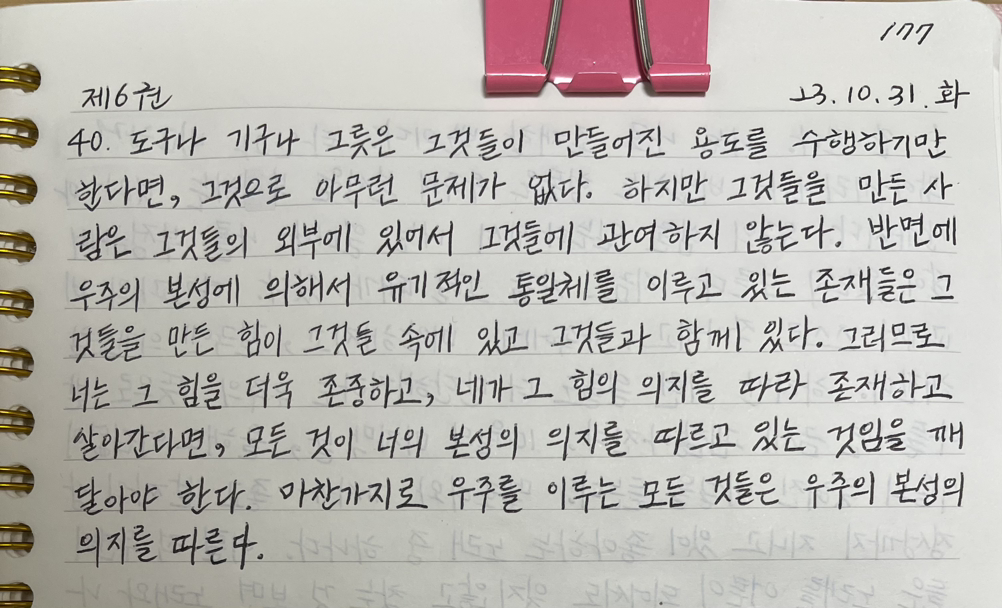 177
제6권 23.10.31.화
40. 도구나 기구나 그릇은 그것들이 만들어진 용도를 수행하기만
한다면, 그것으로 아무런 문제가 없다. 하지만 그것들을 만든 사
람은 그것들의 외부에 있어서 그것들에 관여하지 않는다. 반면에
우주의 본성에 의해서 유기적인 통일체를 이루고 있는 존재들은 그
것들을 만든 힘이 그것들 속에 있고 그것들과 함께 있다. 그러므로
너는 그 힘을 더욱 존중하고, 네가 그 힘의 의지를 따라 존재하고
살아간다면, 모든 것이 너의 본성의 의지를 따르고 있는 것임을 깨
달아야 한다. 마찬가지로 우주를 이루는 모든 것들은 우주의 본성의
의지를 따른다.